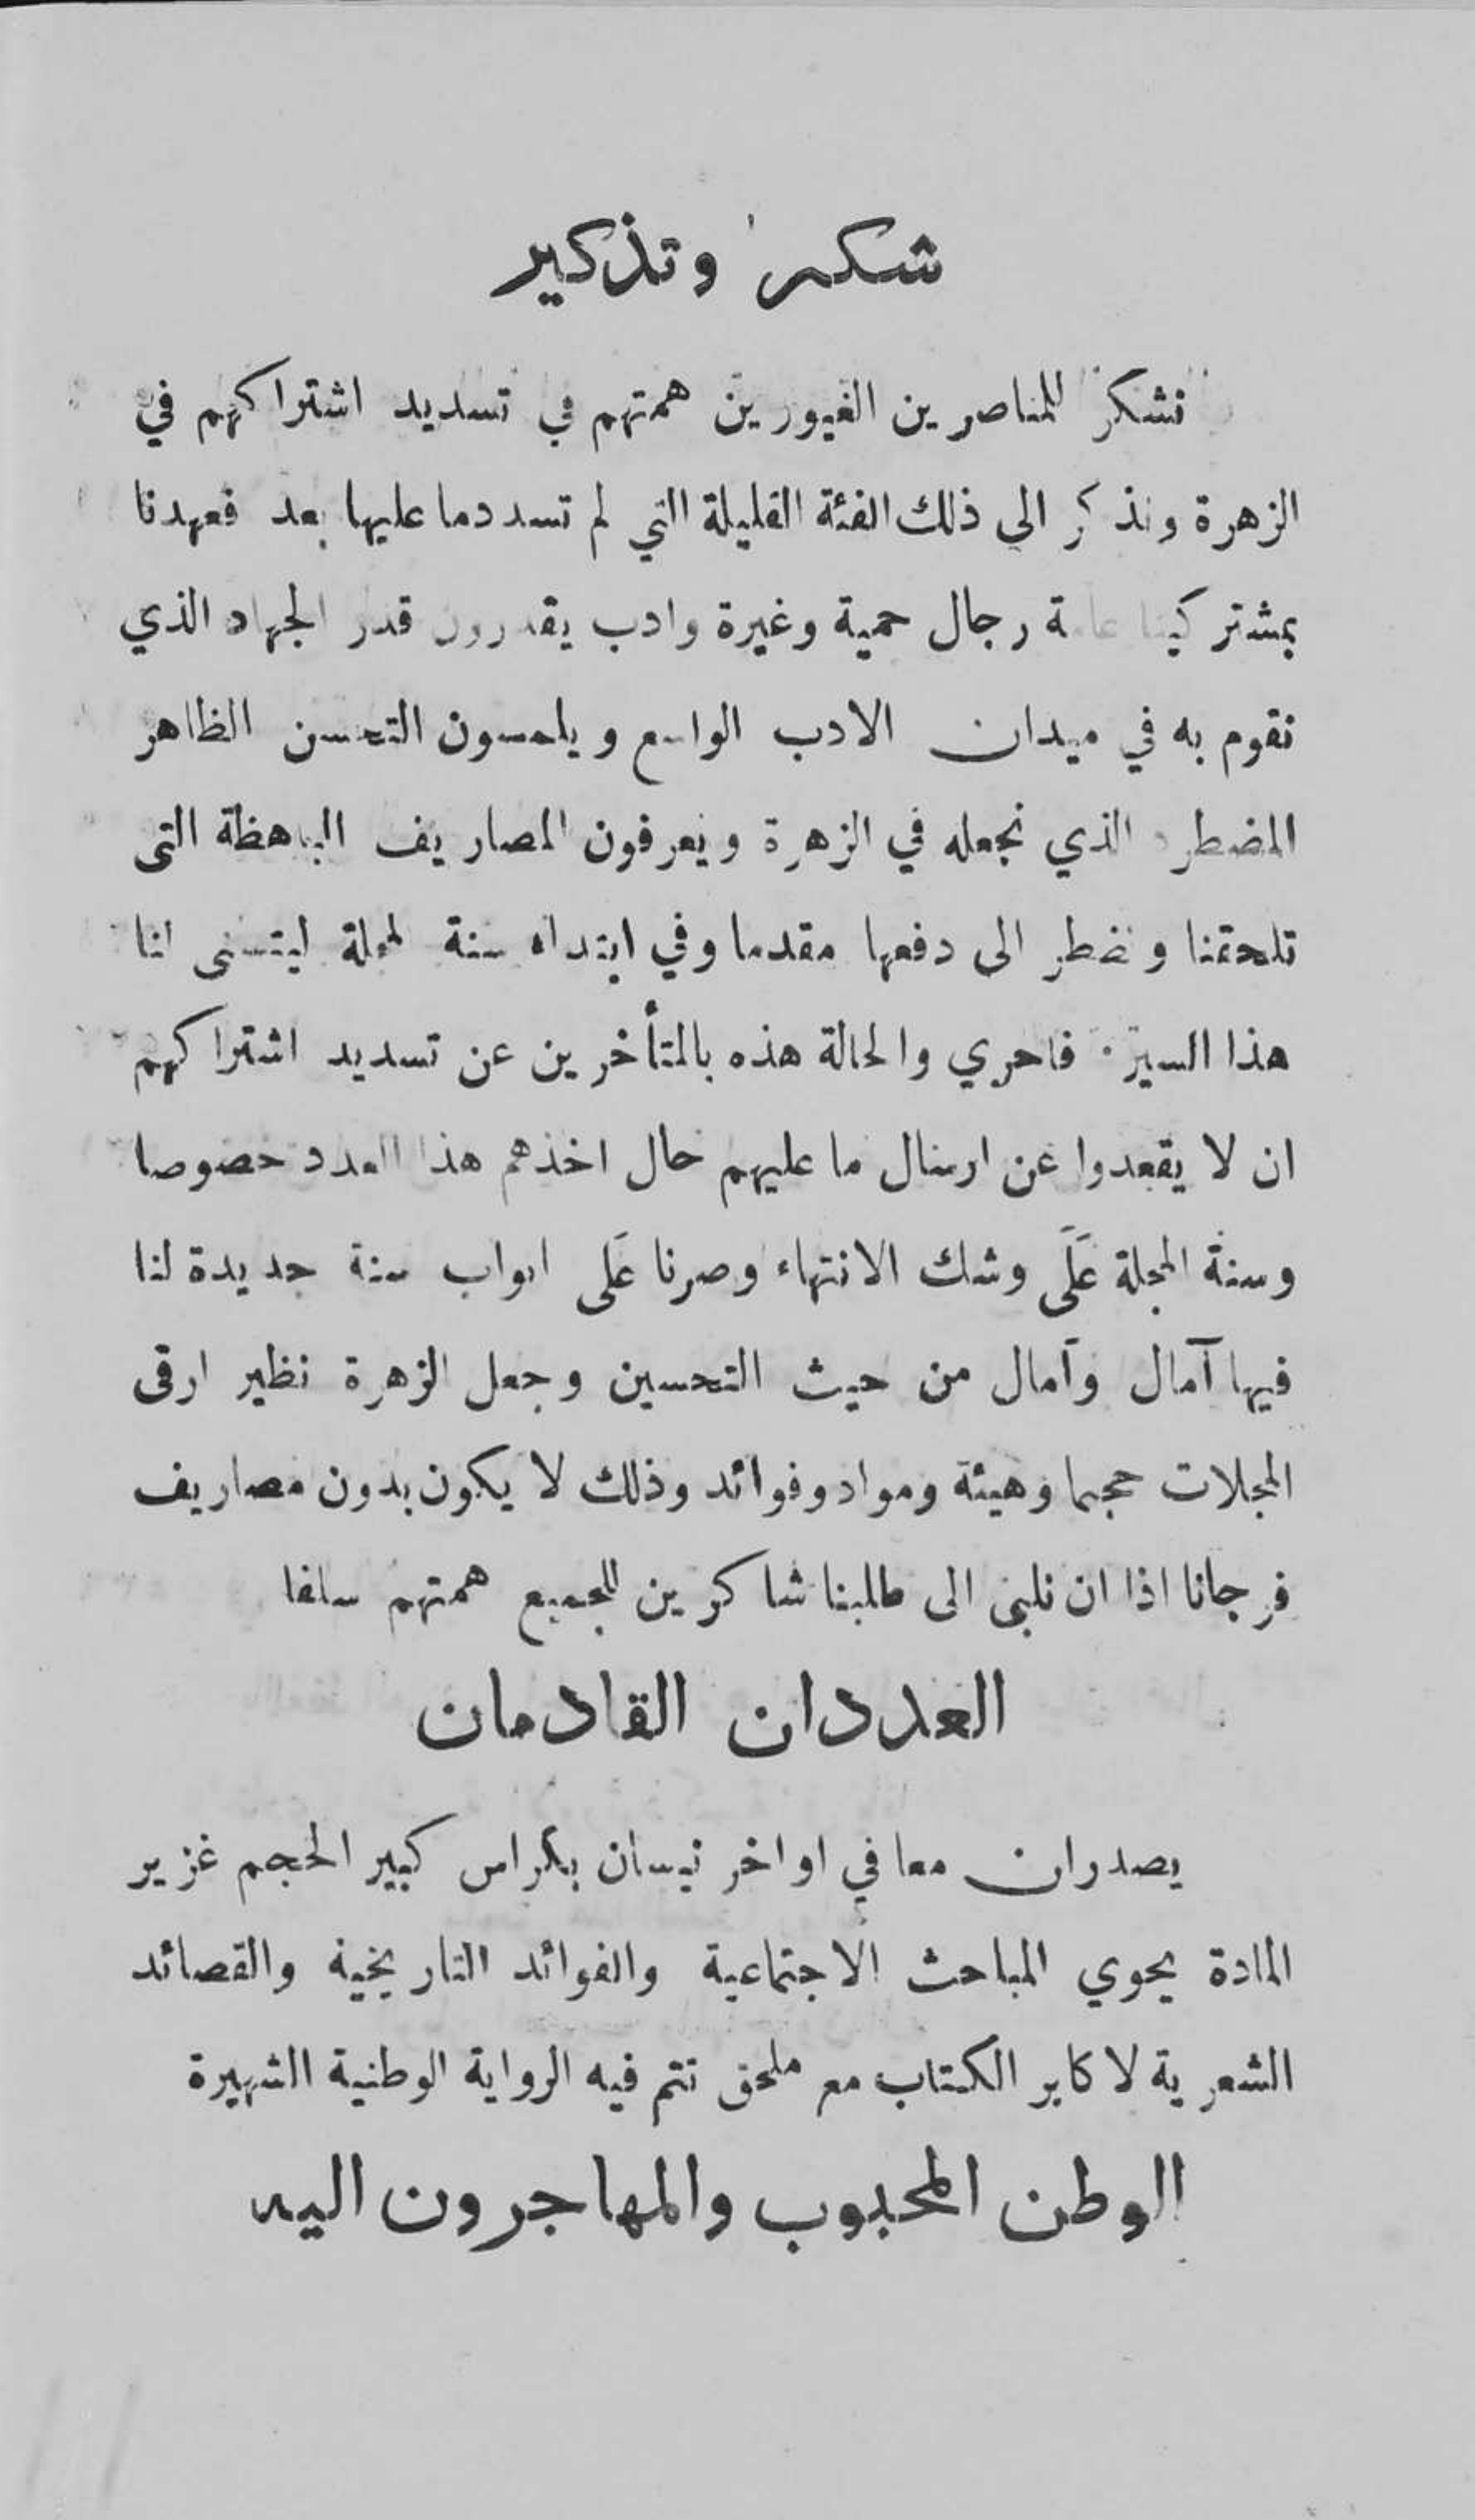 شكر وتذكير
نشكر للمناصرين الغيورين همتهم في تسديد اشتراكهم في
الزهرة ونذكر الى ذلك الفئة القليلة التي لم تسدد ما عليها بعد فعهدنا
بمشتركينا عامة رجال حمية وغيرة وادب يقدرون قدر الجهاد الذي
نقوم به في ميدان الادب الواسع ويلمسون التحسن الظاهر
المضطرد الذي نجعله في الزهرة ويعرفون المصاريف الباهظة التى
تلحقنا ونضطر الى دفعها مقدما وفي ابتداء سنة المجلة ليتسنى لنا
هذا السير. فاحري والحالة هذه بالمتأخرين عن تسديد اشتراكهم
ان لا يقعدوا عن ارسال ما عليهم حال اخذهم هذا العدد خصوصا
وسنة المجلة عَلَى وشك الانتهاء وصرنا عَلى ابواب سنة جديدة لنا
فيها آمال وآمال من حيث التحسين وجعل الزهرة نظير ارقى
المجلات حجما وهيئة ومواد وفوائد وذلك لا يكون بدون مصاريف
فرجانا اذا ان نلبى الى طلبنا شاكرين للجميع همتهم سلفا
العددان القادمان
يصدران معا في اواخر نيسان بكراس كبير الحجم غزير
المادة يحوي المباحث الاجتماعية والفوائد التاريخية والقصائد
الشعرية لاكابر الكتاب مع ملحق تتم فيه الرواية الوطنية الشهيرة
الوطن المحبوب والمهاجرون اليه